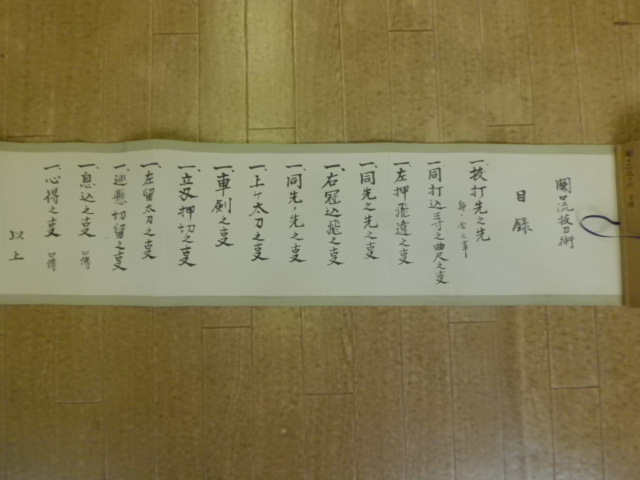 関口流抜刀術
目録
一、抜打先之先
一、同打込三寸之曲尺之事
一、左押飛違之事
一、同先之先之事
一、右冠込飛之事
一、同先ノ先之事
一、上ケ太刀之事
一、車剣之事
一、立刄押切之事
一、左留太刀之事
一、切留之事
一、息込之事
一、心得之事
以上